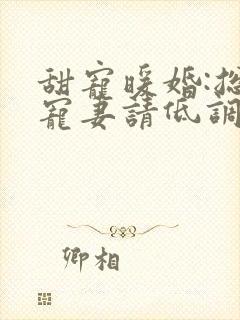 甜寵暖婚:總
寵妻請低調
卿相